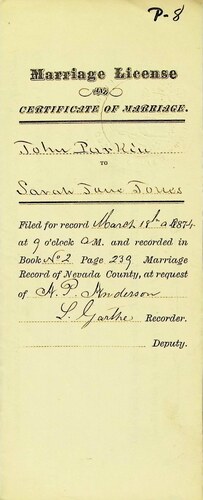 P-8
Marriage License
AND
CERTIFICATE OF MARRIAGE.
John Parkin
TO
Sarah Jane Jones
Filed for record March 18th a 1874
at 9 o'clock a M. and recorded in
Book No 2 Page 239 Marriage
Record of Nevada County, at request
of A. P. Anderson
L. Garthe Recorder.
Deputy.